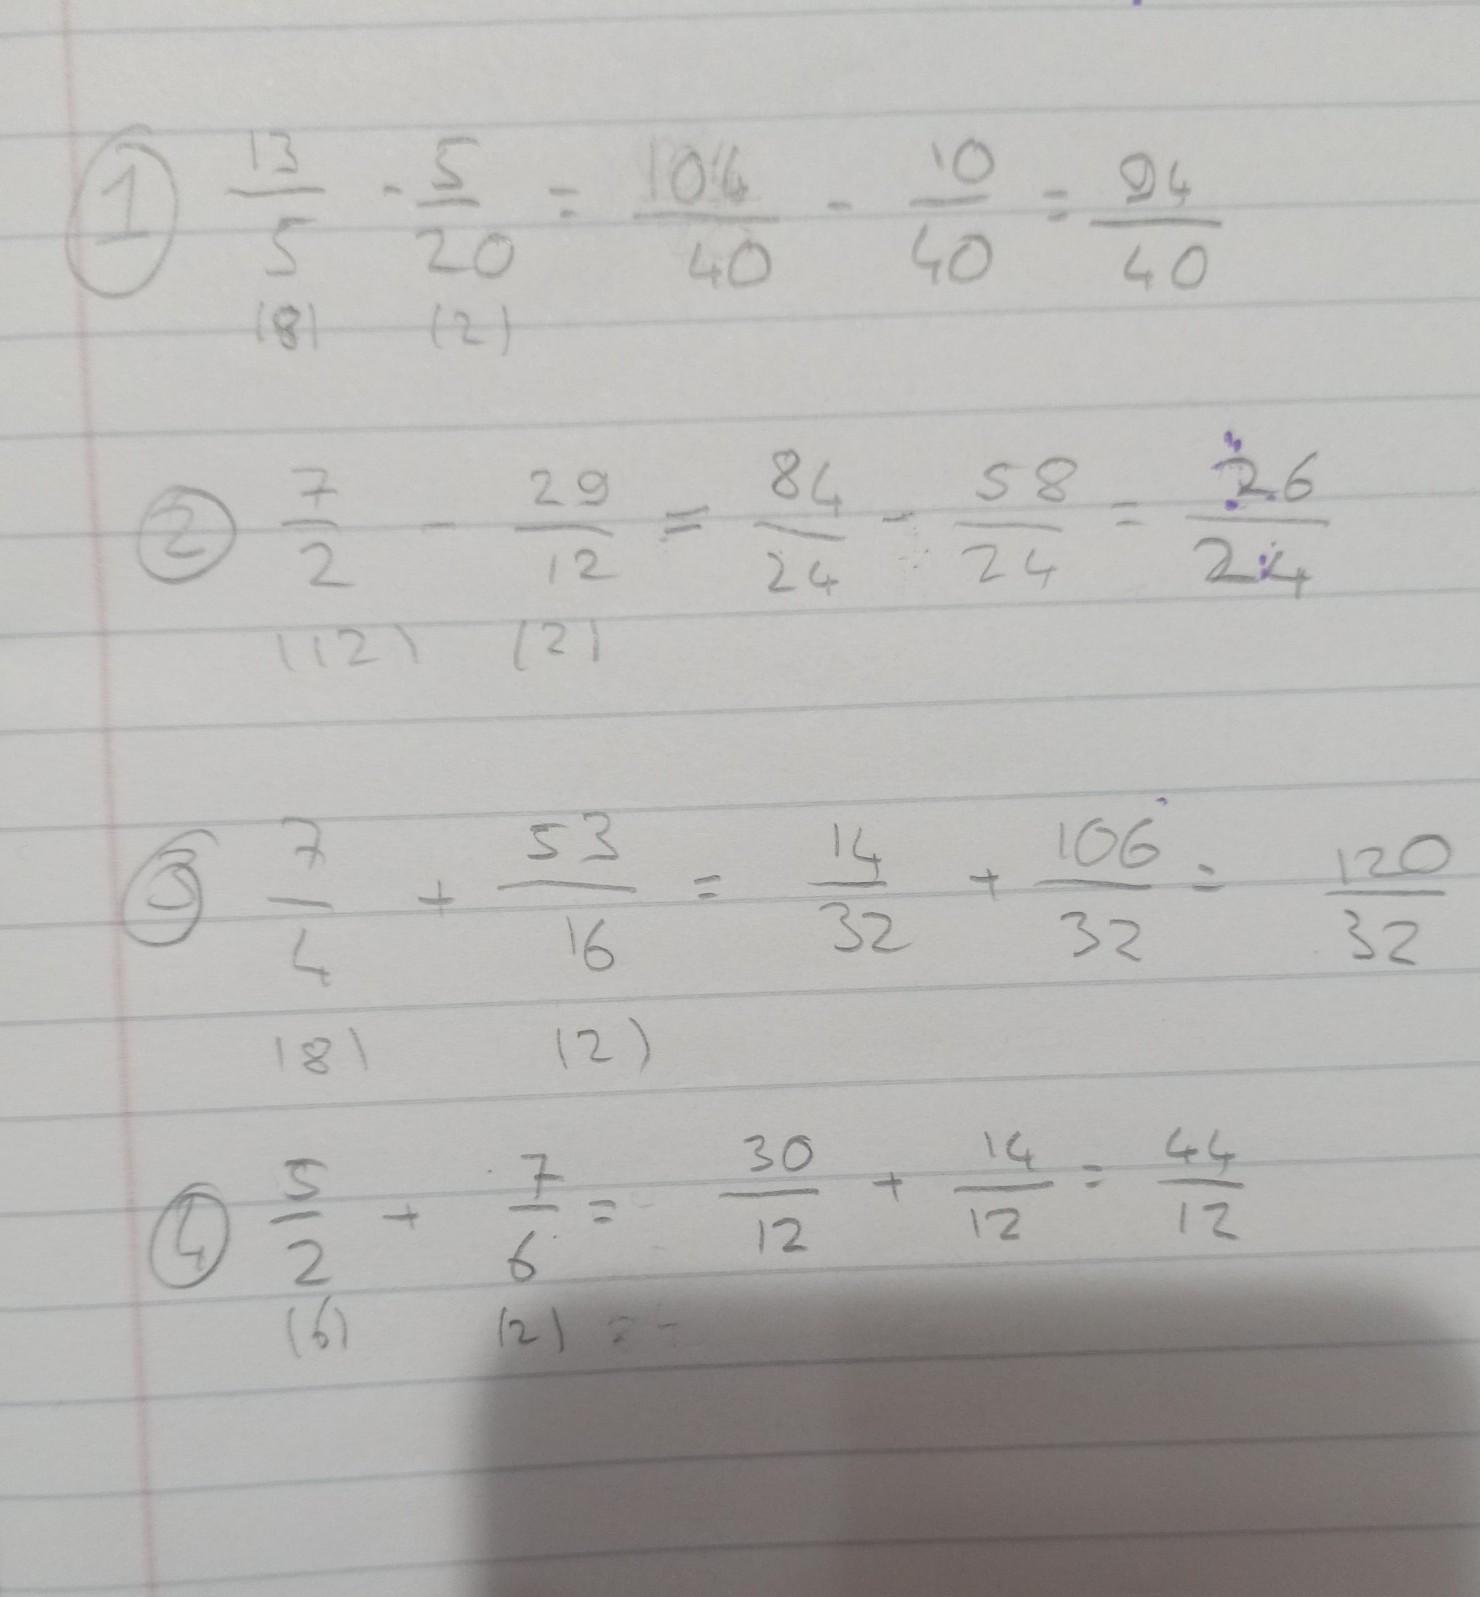 ① 13/5 - 5/20 = 104/40 - 10/40 = 94/40
(8) (2)
② 7/2 - 29/12 = 84/24 - 58/24 = 26/24
(12) (2)
③ 7/4 + 53/16 = 14/32 + 106/32 = 120/32
(8) (2)
④ 5/2 + 7/6 = 30/12 + 14/12 = 44/12
(6) (2) =